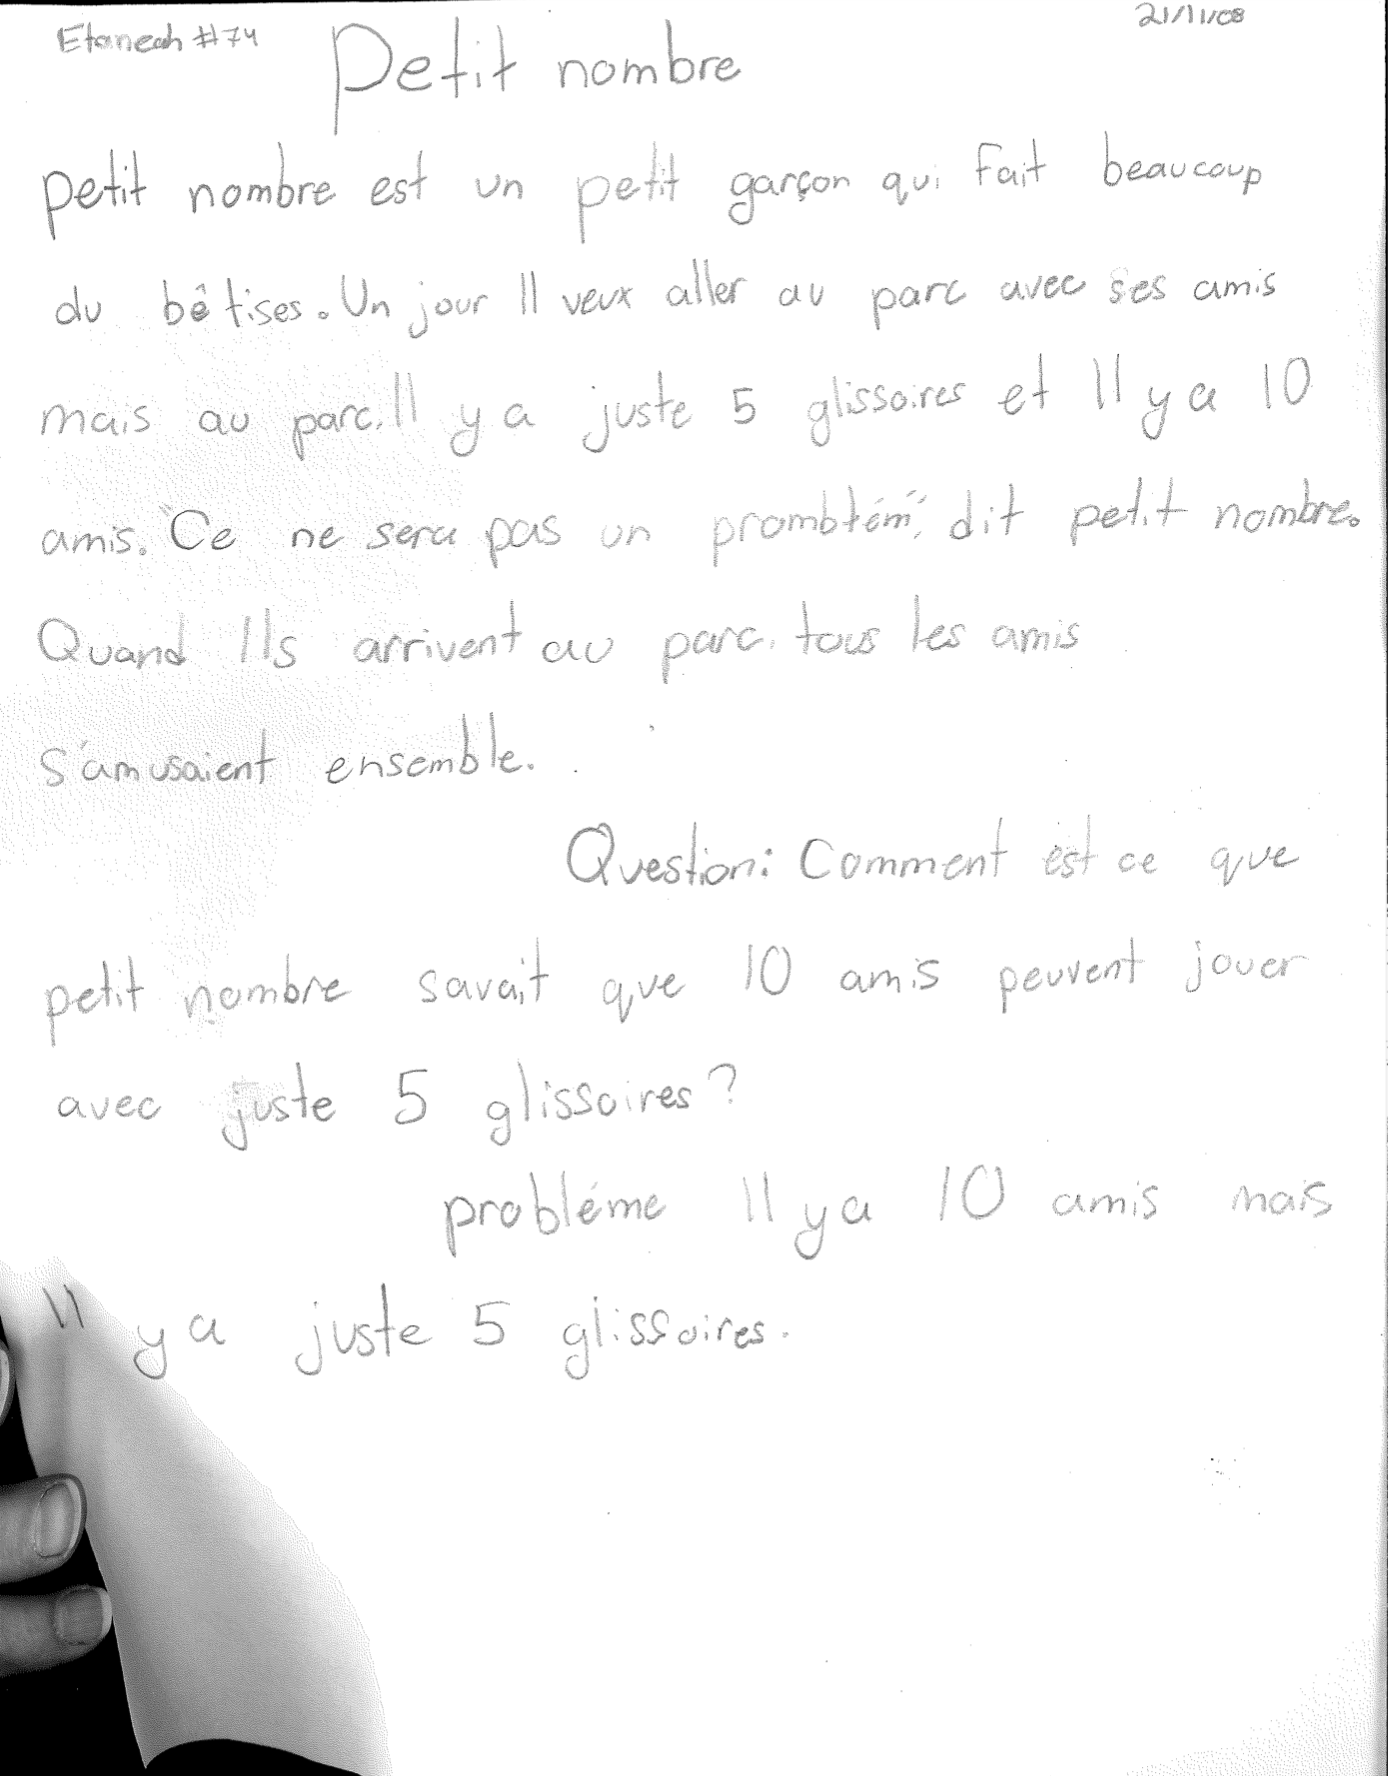 Etaneah #74
21/11/08
Petit nombre
petit nombre est un petit garçon qui fait beaucoup
du bêtises. Un jour Il veux aller au parc avec ses amis
mais au parc. Il y a juste 5 glissoires et Il y a 10
amis. "Ce ne sera pas un promblém", dit petit nombre.
Quand Ils arrivent au parc. tous les amis
s'amusaient ensemble.
Question: Comment est ce que
petit nombre savait que 10 amis peuvent jouer
avec juste 5 glissoires?
probléme Il y a 10 amis mais
Il y a juste 5 glissoires.